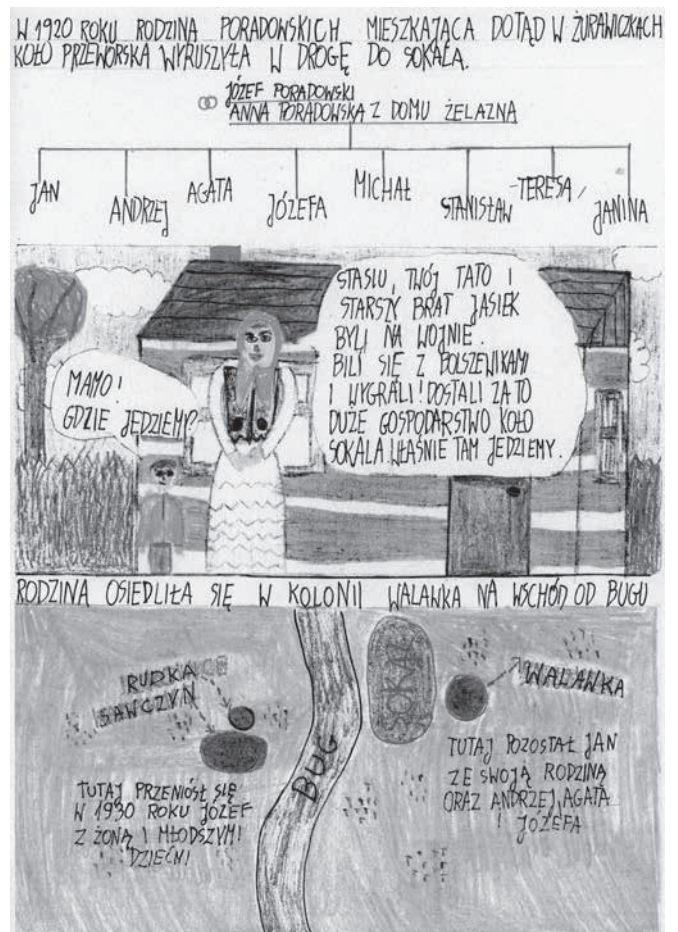 W 1920 ROKU RODZINA PORADOWSKICH MIESZKAJĄCA DOTĄD W ŻURAWICZKACH
KOŁO PRZEWORSKA WYRUSZYŁA W DROGĘ DO SOKALA.
JÓZEF PORADOWSKI
ANNA PORADOWSKA Z DOMU ŻELAZNA
JAN
ANDRZEJ
AGATA
JÓZEFA
MICHAŁ
STANISŁAW
TERESA
JANINA
MAMO!
GDZIE JĘDZIEMY?
STASIU, TWÓJ TATO I
STARSZY BRAT JASIEK
BYLI NA WOJNIE.
BILI SIĘ Z BOLSZEWIKAMI
I WYGRALI! DOSTALI ZA TO
DUŻE GOSPODARSTWO KOŁO
SOKALA. WŁAŚNIE TAM JEDZIEMY.
RODZINA OSIEDLIŁA SIĘ W KOLONII WALAWKA NA WSCHÓD OD BUGU
RUDKA
SAWCZYN
BUG
SOKAL
WALAWKA
TUTAJ PRZENIÓSŁ SIĘ
W 1930 ROKU JÓZEF
Z ŻONĄ I MŁODSZYMI
DZIEĆMI
TUTAJ POZOSTAŁ JAN
ZE SWOJĄ RODZINĄ
ORAZ ANDRZEJ, AGATA
I JÓZEFA